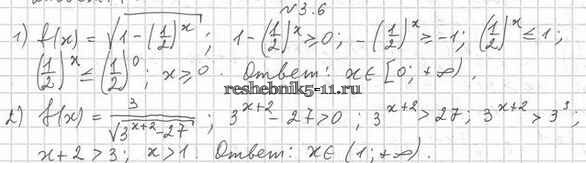 №3.6
1) f(x) = √(1-(1/2)^x) ; 1-(1/2)^x ≥ 0; -(1/2)^x ≥ -1; (1/2)^x ≤ 1;
(1/2)^x ≤ (1/2)^0; x ≥ 0. Ответ: x ∈ [0; +∞).
reshebnik5-11.ru
2) f(x) = 3/√(3^(x+2)-27) ; 3^(x+2) - 27 > 0; 3^(x+2) > 27; 3^(x+2) > 3^3;
x+2 > 3; x > 1. Ответ: x ∈ (1; +∞).